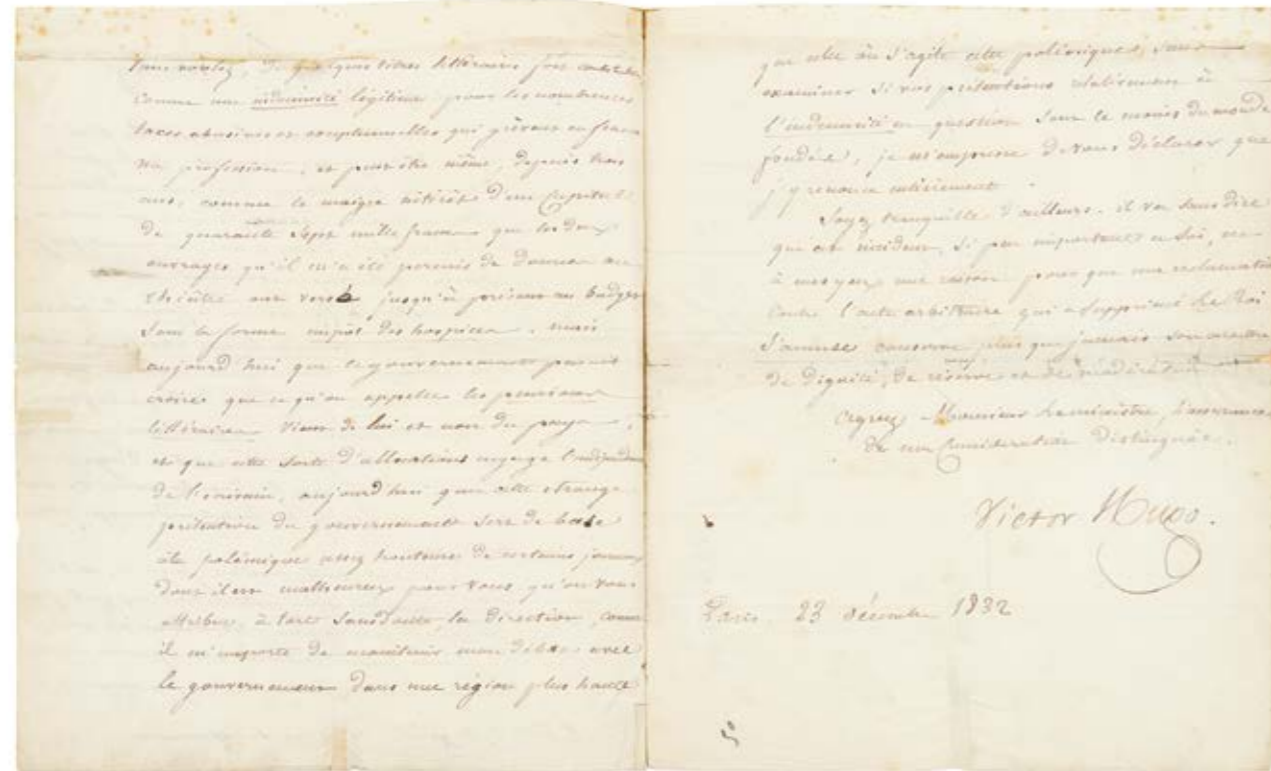 vous voulez, de quelques titres littéraires
comme une indemnité légitime pour les nombreuses
taxes abusives et exceptionnelles qui grèvent en france
ma profession, et peut être même, depuis trois
ans, comme le maigre intérêt d'un capital
de quarante sept mille francs que les deux
ouvrages qu'il m'a été permis de donner au
théâtre ont versé jusqu'à présent au budget
sous la forme impôt des hospices. mais
aujourd'hui que le gouvernement paraît
croire que ce qu'on appelle les pensions
littéraires vient de lui et non du pays,
et que cette sorte d'allocations engage l'indépendance
de l'écrivain, aujourd'hui que cette étrange
prétention du gouvernement sert de base
à la polémique assez honteuse de certains journaux
dont il est malheureux pour vous qu'on vous
attribue, à tort sans doute, la direction, comme
il m'importe de maintenir mon débat avec
le gouvernement dans une région plus haute
que celle où s'agite cette polémique, sans
examiner si vos prétentions relativement à
l'indemnité en question sont le moins du monde
fondées, je m'empresse de vous déclarer que
j'y renonce entièrement.
Soyez tranquille d'ailleurs. il va sans dire
que cet incident, si peu important en soi, est
à mes yeux une raison pour que ma réclamation
contre l'acte arbitraire qui a supprimé Le Roi
s'amuse conserve plus que jamais son caractère
de dignité, de réserve et de modération
Agréez Monsieur le ministre, l'assurance
de ma Considération Distinguée.
Victor Hugo.
Paris. 23 décembre 1832